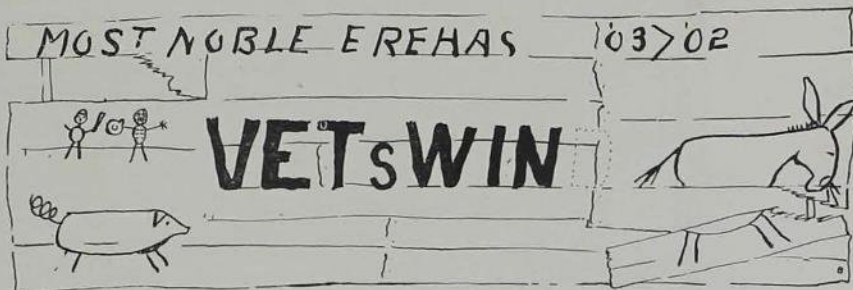 MOST NOBLE EREHAS '03>'02
VETsWIN